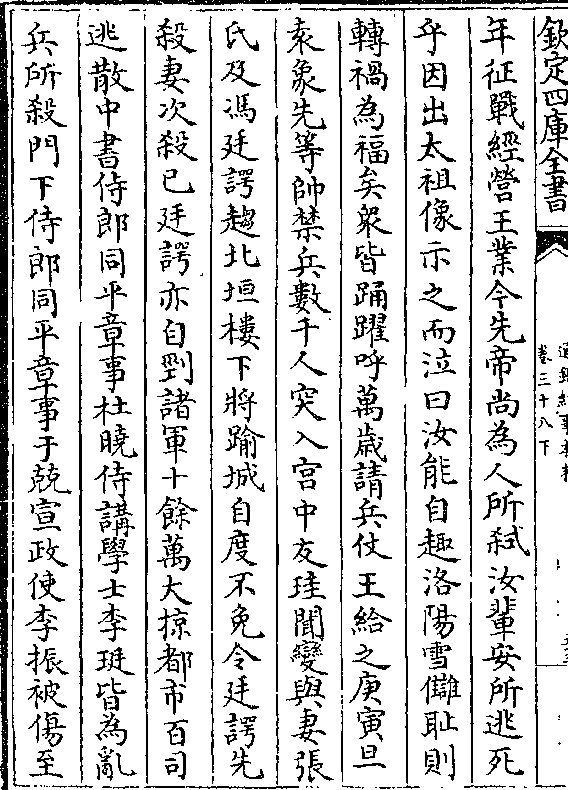 欽定四庫全書
卷三十八下
年征戰經營王業今先帝尚為人所弑汝輩安所逃死
乎因出太祖像示之而泣曰汝能自趣洛陽雪讎耻則
轉禍為福矣衆皆踊躍呼萬歲請兵仗王給之庚寅旦
袁象先等帥禁兵數千人突入宫中友珪聞變與妻張
氏及馮廷諤趨北垣樓下將踰城自度不免令廷諤先
殺妻次殺已廷諤亦自剄諸軍十餘萬大掠都市百司
逃散中書侍郎同平章事杜曉侍講學士李珽皆為亂
兵所殺門下侍郎同平章事于兢宣政使李振被傷至